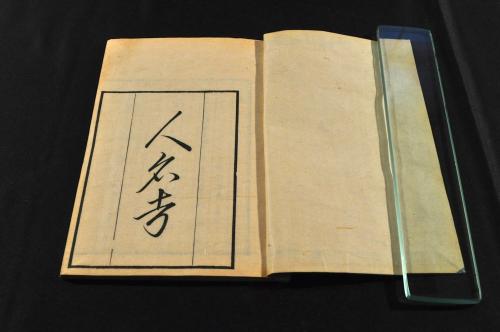 人名考